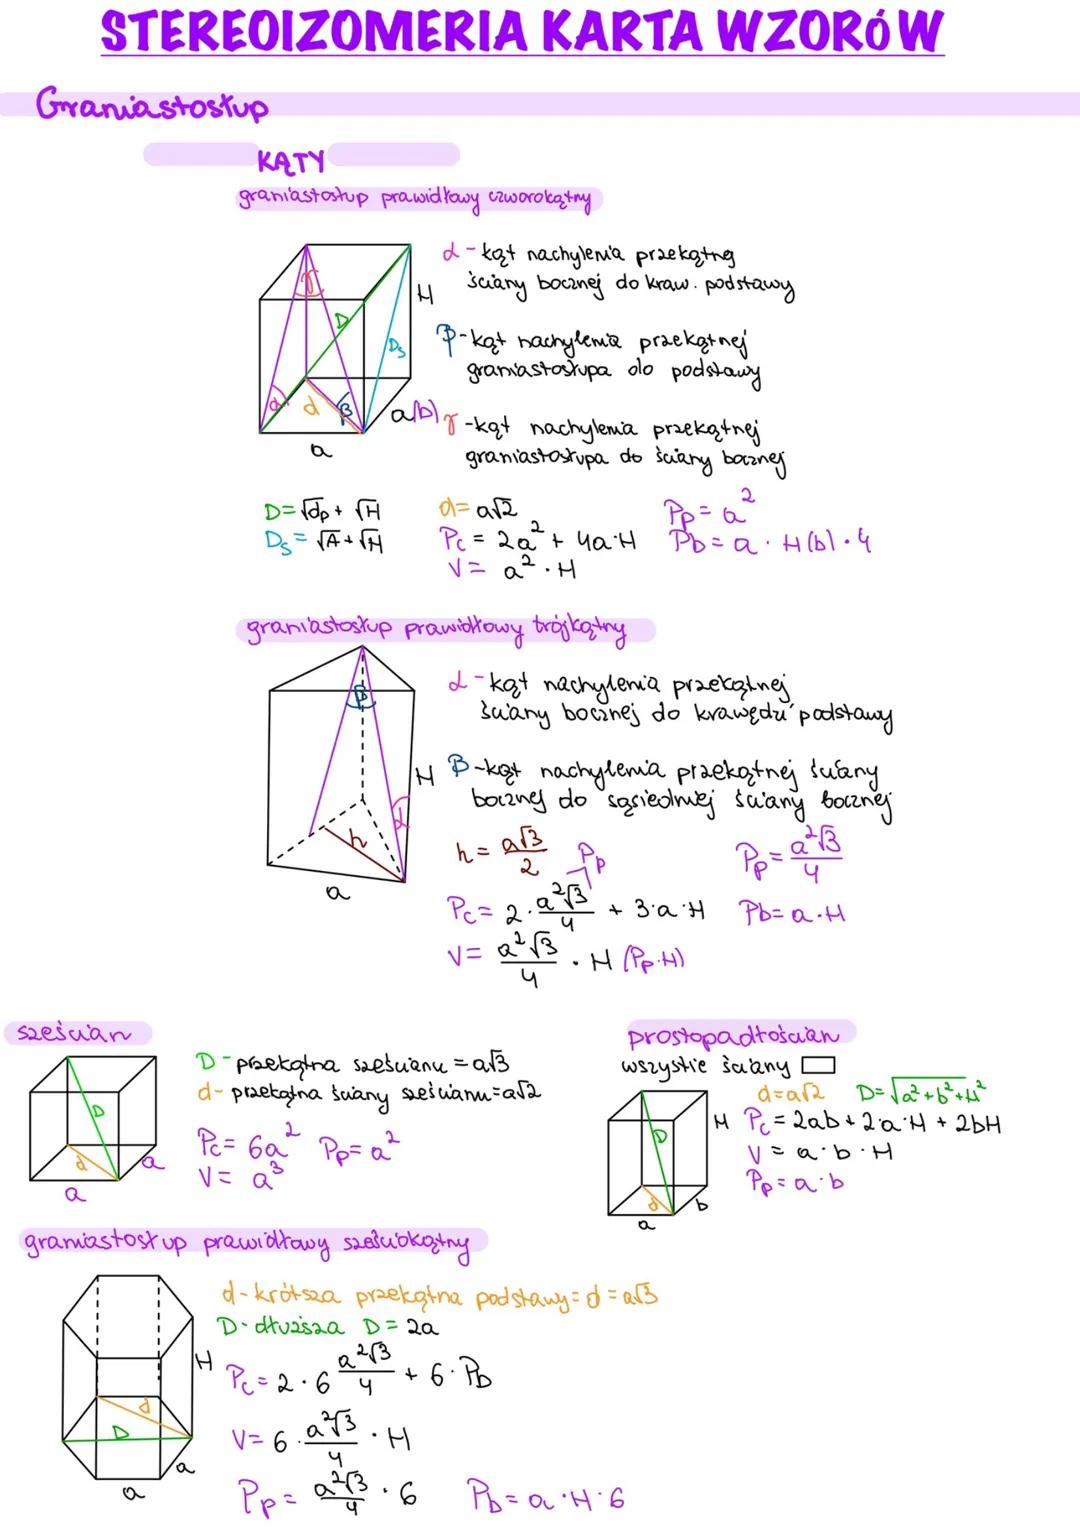 STEREOIZOMERIA KARTA WZORÓW
Graniastosłup
KĄTY
graniastosłup prawidłowy czworokątny
α - kąt nachylenia przekątnej
ściany bocznej do kraw. podstawy
β - kąt nachylenia przekątnej
graniastosłupa do podstawy
γ - kąt nachylenia przekątnej
graniastosłupa do ściany bocznej
γ
H
D
Ds
α
d
β
a(b)
a
D = √dp + √H
d = a√2
Pp = a²
Ds = √A + √H
Pc = 2a² + 4a·H
Pb = a · H(b) · 4
V = a² · H
graniastosłup prawidłowy trójkątny
α - kąt nachylenia przekątnej
ściany bocznej do krawędzi podstawy
β
H
β - kąt nachylenia przekątnej ściany
bocznej do sąsiedniej ściany bocznej
α
h
a
h = a√3/2
Pp
Pp = a²√3/4
Pc = 2·a²√3/4 + 3·a·H
Pb = a·H
V = a²√3/4 · H (Pp·H)
sześcian
D - przekątna sześcianu = a√3
d - przekątna ściany sześcianu = a√2
D
d
a
a
Pc = 6a² Pp = a²
V = a³
prostopadłościan
wszystkie ściany
d = a√2 D = √a² + b² + H²
H
Pc = 2ab + 2·a·H + 2bH
D
V = a·b·H
Pp = a·b
d
b
a
graniastosłup prawidłowy sześciokątny
d - krótsza przekątna podstawy = d = a√3
D - dłuższa D = 2a
H
Pc = 2·6 a²√3/4 + 6·Pb
d
D
V = 6·a²√3/4 · H
a
a
Pp = a²√3/4 · 6
Pb = a·H·6